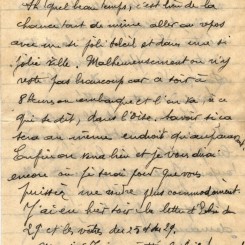 Ah quel beau temps, c'est bien de la
chance tout de même aller au repos
avec un si joli soleil et dans une si
jolie ville. Malheureusement on n'y
reste pas beaucoup car ce soir à
8 heures on embarque et l'on va, à ce
qui se dit, dans l'Oise, savoir si ce
sera au même endroit qu'auparavant.
Enfin on verra bien et je voudrais
encore où je serai pour que vous
puissiez me suivre plus commodément.
J'ai eu hier soir la lettre d' du
29 et les votres du 25 et du 29.